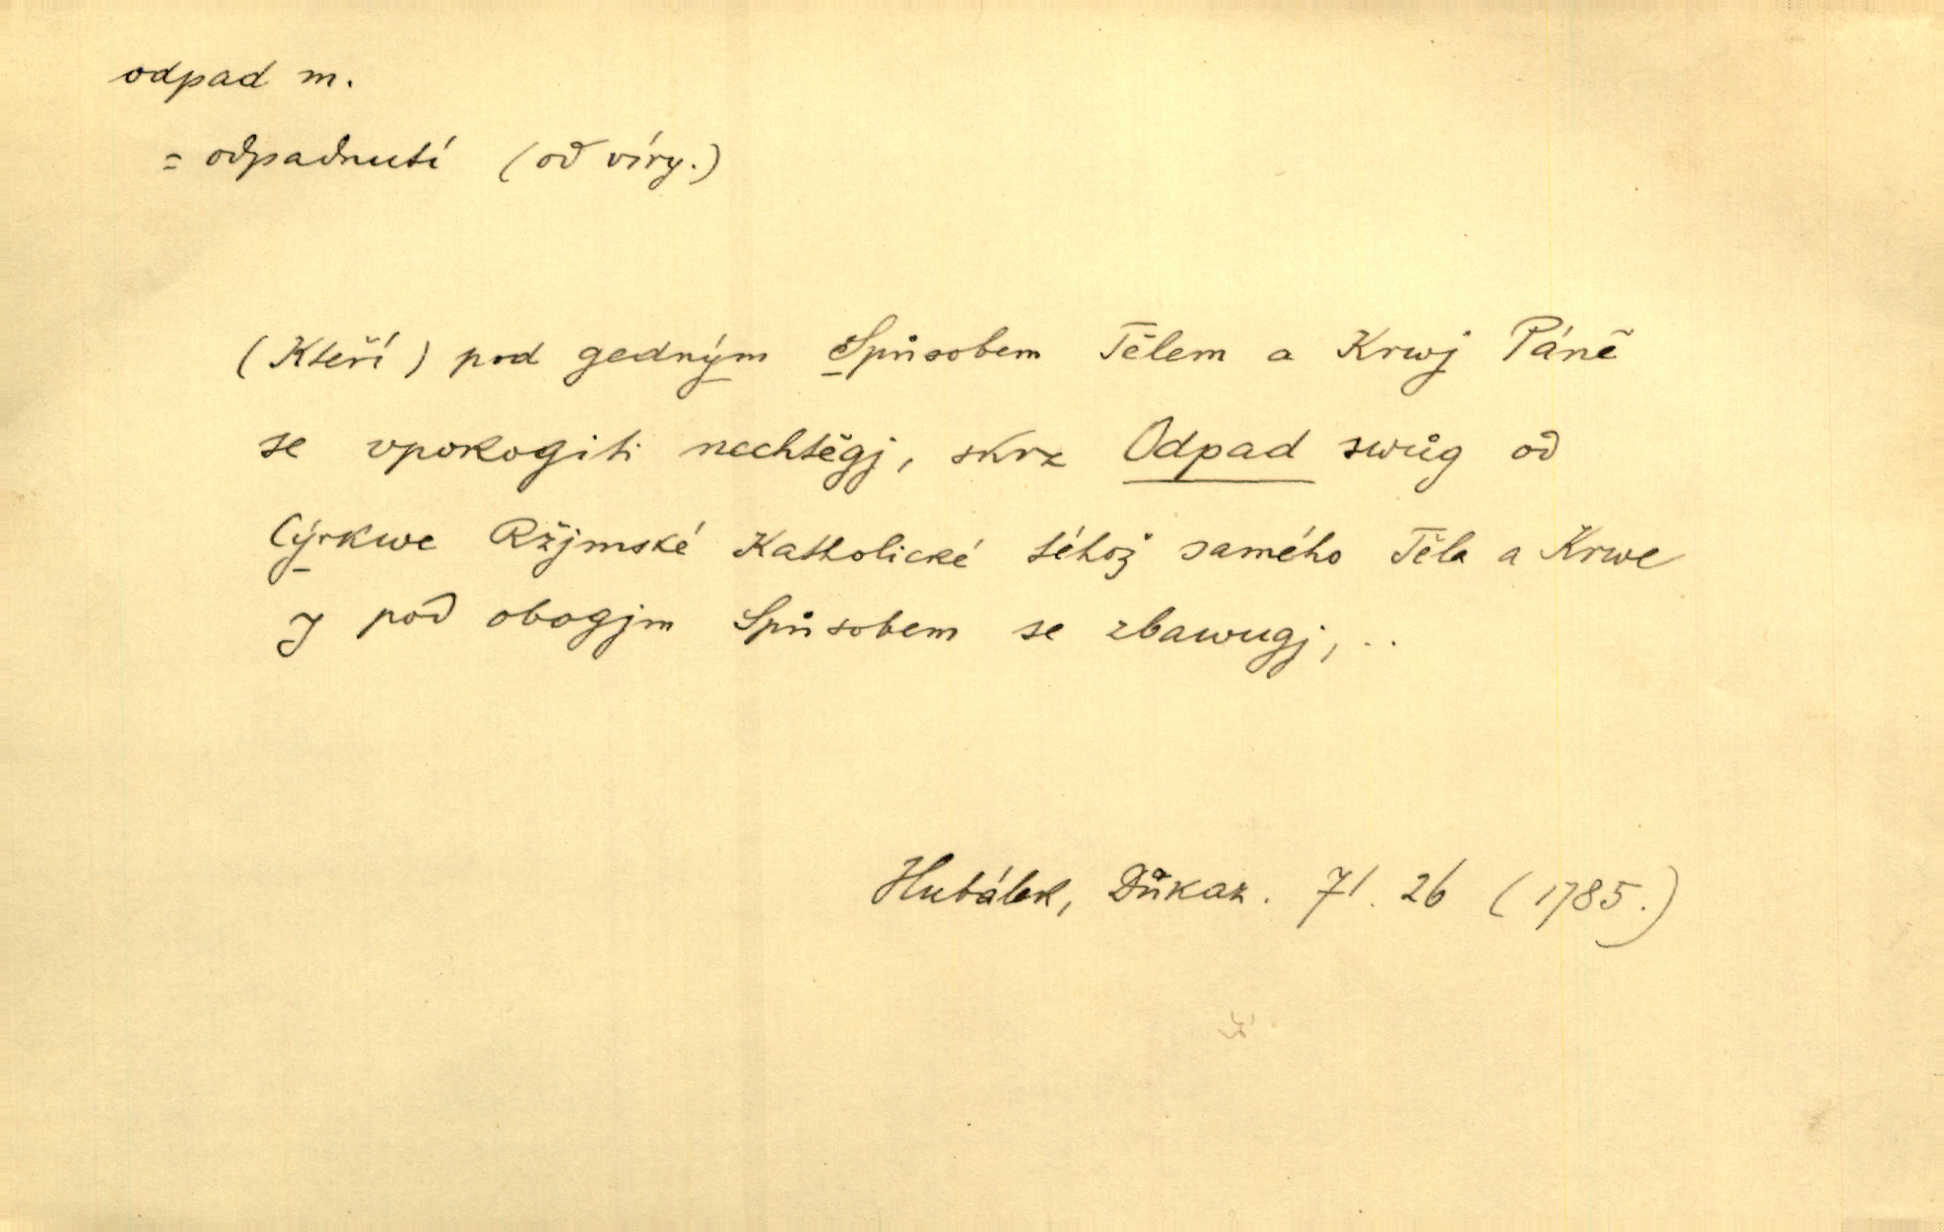 odpad m.
= odpadnutí (od víry.)
(Kteří) pod gedným Spůsobem Tělem a Krwj Páně
se vpokogiti nechtěgj, skrz Odpad swůg od
Cýrkwe Ržjmské Katholické téhož samého Těla a Krwe
y pod obogjm Spůsobem se zbawugj, ..
Hubálek, Důkaz. 71. 26 (1785.)